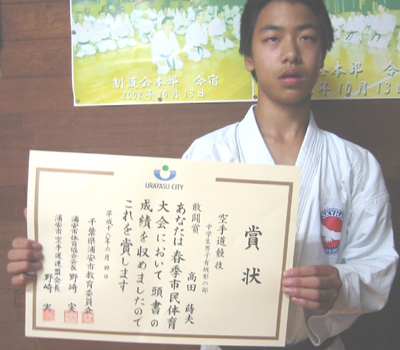 会本部 合宿
2002年10月13日
本部 合宿
10月13日
URAYASU CITY
賞状
空手道競技
中学生男子有級形の部
敢闘賞
高田 蒔夫
あなたは春季市民体育
大会において頭書の
成績を収めましたので
これを賞します
平成十八年六月四日
千葉県浦安市教育委員会
浦安市体育協会会長 野崎 実
浦安市空手道連盟会長 野崎 実